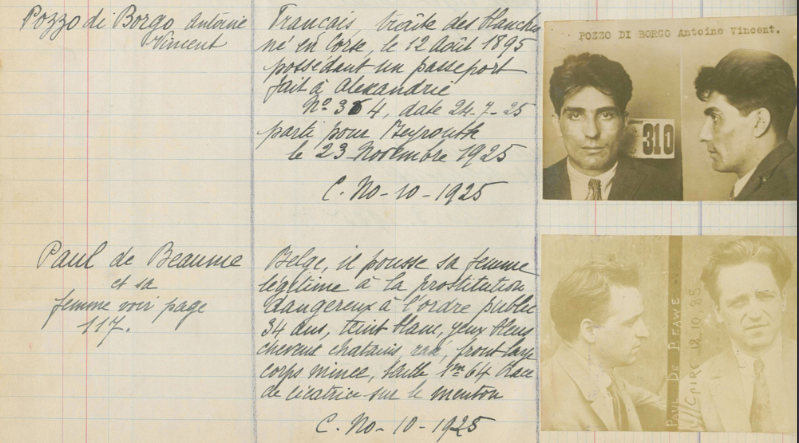 Pozzo di Borgo Antoine
Vincent
Français, traite des blanches
né en Corse, le 12 Août 1895
possédant un passeport
fait à Alexandrie
No. 364, date 24-7-25
parti pour Beyrouth
le 23 Novembre 1925
C. No-10-1925
POZZO DI BORGO Antoine Vincent.
310
Paul de Beaume
et sa
femme voir page
117.
Belge, il pousse sa femme
légitime à la prostitution
dangereux à l'ordre public
34 ans, teint blanc, yeux bleus
cheveux chatains, rasé, front large
corps mince, taille 1m 64 trace
de cicatrice sur le menton
C. No-10-1925
PAUL DE
12.10.25